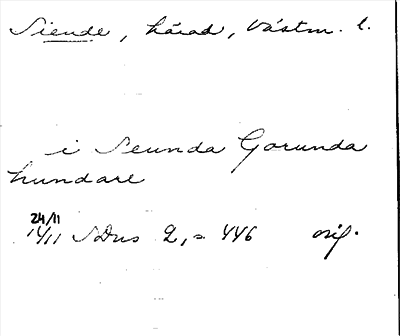 Siende, härad, Västm. l.
i Seunda Gorunda
hundare
24/11
14/11 SDns 2, s 446 orig.